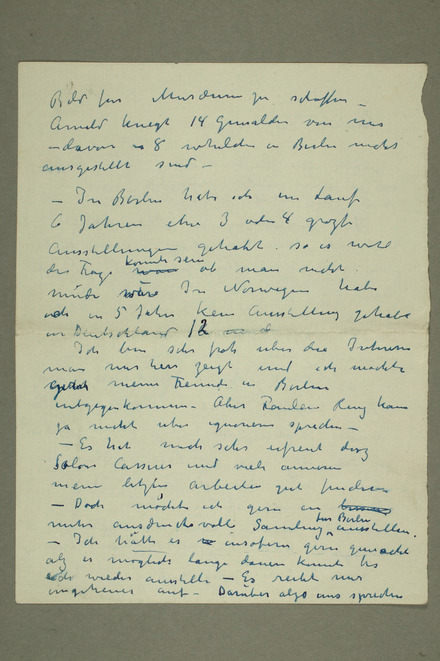 Bild fürs Museum zu schaffen –
Arnold kriegt 14 Gemälden von mir
– davon 8 in Berlin nicht
ausgestellt sind –
– In Berlin habe ich im Lauf
6 Jahren etwa 3 oder 4 große
Ausstellungen gehabt. so es wird
die Frage könnte sein ob man nicht
müde wäre In Norwegen habe
ich in 5 Jahre kein Ausstellung gehabt
in Deutschland 12
Ich bin sehr froh über das Interesse
man mir hier zeigt und ich möchte
gern meine Freunde in Berlin
entgegenkommen – Aber Fräulein Ring kann
ja nicht über ignorem sprechen –
– Es hat mich sehr erfreut daß
Salon Cassirer und viele anderen
meine letzten arbeiten gut finden
– Doch möchte ich gern an
ausdrucksvolle Sammlung für Berlin ausstellen.
– Ich hätte es insofern gern gemacht
als es möglichst lange dauern könnte bis
ich wieder ausstelle – Es reibt mir
ungeheuer auf – Darüber also uns sprechen